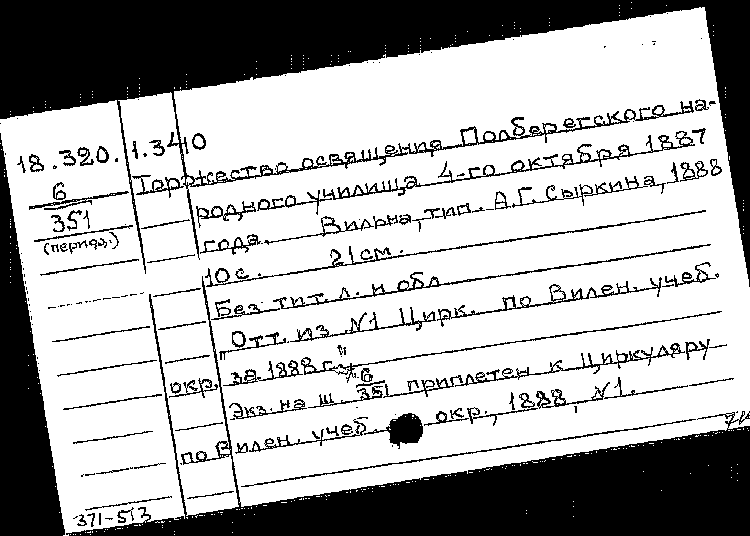 18.320.1.340
6
351
(период.)
Торжество освящения Полберегского на-
родного училища 4-го октября 1887
года. Вильна, тип. А.Г. Сыркина, 1888
10 с. 21 см.
Без тит. л. и обл
"Отт. из №1 Цирк. по Вилен. учеб.
окр. за 1888 г."
Экз. на ш. 6/351 приплетен к Циркуляру
по Вилен. учеб. окр., 1888, №1.
371-513